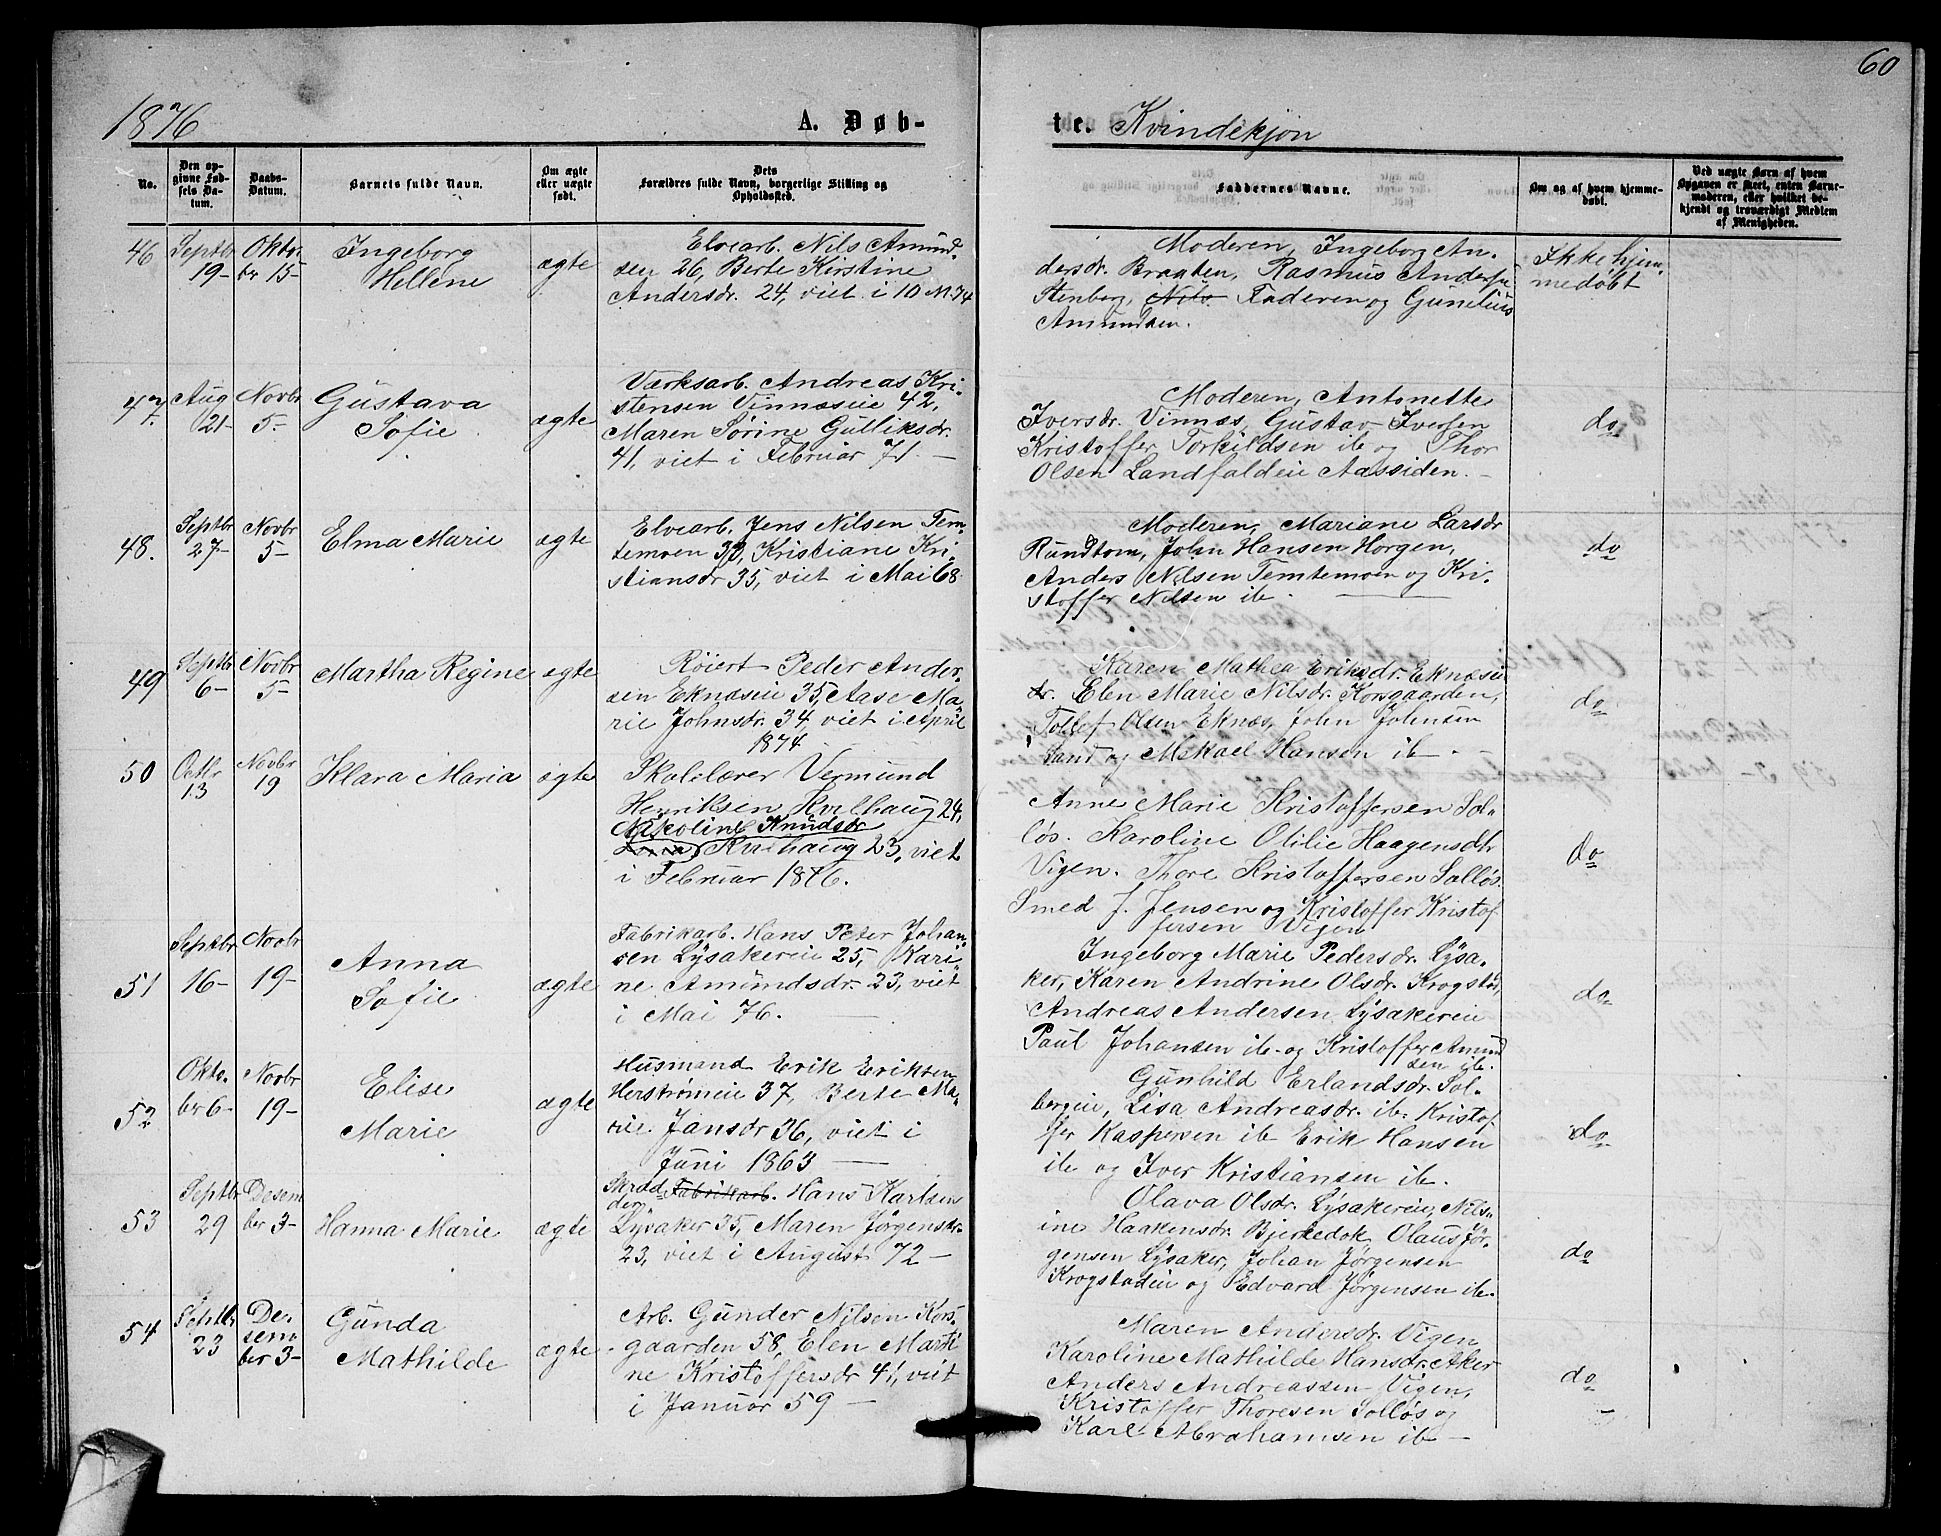 60
1876
A. Døb-
te. Kvindekjøn
No.
Den op-
givne Fød-
sels Da-
tum.
Daabs-
Datum.
Barnets fulde Navn.
Om ægte
eller uægte
født.
Dets
Forældres fulde Navn, borgerlige Stilling og
Opholdssted.
Faddernes Navne.
Om og af hvem hjemme-
døbt.
Ved uægte Børn af hvem
Opgaven er skeet, enten Barne-
moderen, eller hvilket be-
kjendt og troværdigt Medlem
af Menigheden.
46
Septbr
19-
Okto.
br 15-
Ingeborg
Hellene
ægte
Elvearb. Nils Amund.
sen 26, Berte Kirstine
Andersdr. 24, viet i 10 M. 74
Moderen, Ingeborg An-
dersdr. Braaten, Rasmus Andersn
Stenberg, Nils. Faderen og Gunelius
Amundsen.
Ikke hjem-
medøbt
47.
Aug
21-
Novbr
5-
Gustava
Sofie
ægte
Værksarb. Andreas Kri-
stensen Vinnæseie 42,
Maren Sørine Gulliksdr.
41, viet i Februar 71. -
Moderen, Antonette
Iversdr. Vinnæs, Gustav Iversen
Kristoffer Torkildsen ib og Thor
Olsen Landfaldeie Aassiden. -
do
48.
Septbr
27-
Novbr
5-
Elma Marie
ægte
Elvearb, Jens Nilsen Tem-
temoen 30, Kristiane Kri-
stiansdr 35, viet i Mai 68
Moderen, Mariane Larsdr
Rundtom, John Hansen Horgen,
Anders Nilsen Temtemoen og Kri-
stoffer Nilsen ib.
do
49
Septbr
6-
Novbr
5-
Martha Regine
ægte
Røiert Peder Ander-
sen Eknæseie 35, Aase Ma-
rie Johnsdr. 34, viet i April
1874
Karen Mathea Eriksdr. Eknæseie
dr. Elen Marie Nilsdr. Korsgaarden,
Tollof Olsen Eknæs, John Johnsen
Sand og Mekael Hansen ib -
do
50
Octbr
13
Novbr
19
Klara Maria
ægte
Skolelærer Vermund
Henriksen Kvelhaug 24,
Nikoline Knudsdr
Kvelhaug 23, viet
i Februar 1876.
Anne Marie Kristoffersen Sol-
løs. Karoline Otilie Haagensdtr
Vigen. Thore Kristoffersen Solløs.
Smed J. Jensen og Kristoffer Kristof
fersen Vigen
do
51
Septbr
16-
Novbr
19-
Anna
Sofie
ægte
Fabrikarb. Hans Peter Johan-
sen Lysakereie 25, Kari-
ne Amundsdr. 23, viet
i Mai 76. -
Ingeborg Marie Pedersdr. Lysa-
ker, Karen Andrine Olsdr. Krogstad,
Andreas Andersen Lysakereie
Paul Johansen ib- og Kristoffer Amund
sen ib.
do
52
Okto.
br 6-
Novbr
19-
Elise
Marie
ægte
Husmand Erik Eriksen
Herstrømeie 37, Berte Ma-
rie Jansdr 36, viet i
Juni 1863 -
Gunhild Erlandsdr. Sol-
bergeie, Lisa Andreasdr. ib. Kristof
fer Kaspersen ib Erik Hansen
ib og Iver Kristiansen ib.
do
53
Septbr
29
Desem
ber 3-
Hanna Marie
ægte
Skræd
der Fabrikarb. Hans Karlsen
Lysaker 35, Maren Jørgensdr.
23, viet i August 72 -
Olava Olsdr. Lysakereie, Nils-
ine Haakensdr. Bjerkedok Olaus Jør-
gensen Lysaker, Johan Jørgensen
Krogstadeie og Edvard Jørgensen ib.
do
54
Septbr
23
De-
sem-
ber 3-
Gunda
Mathilde
ægte
Arb. Gunder Nilsen Kors-
gaarden 58, Elen Marti-
ne Kristoffersdr 41, viet
i Januar 59 -
Maren Andersdr. Vigen
Karoline Mathilde Hansdr. Aker
Anders Andreassen Vigen,
Kristoffer Thoresen Solløs og
Karl Abrahamsen ib -
do